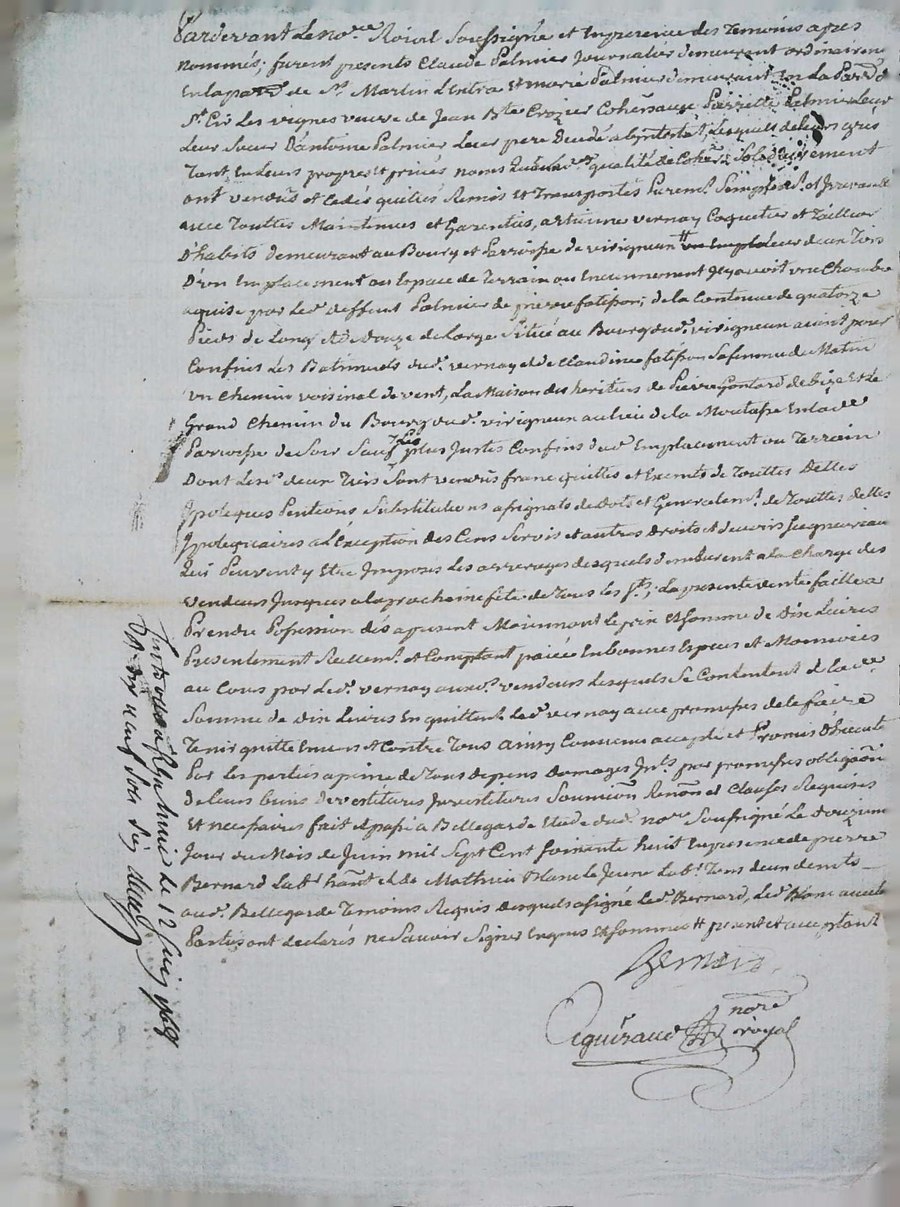 Pardevant Le no.re Roial Soussigné et En presence des Temoins apres
nommés; furent presents Claude Palmier Journalier demeurant ordinairem
En la par.sse de St. Martin Lentra Et marie Palmier demeurant En La Par.sse
St. Cir Les vignes veuve de Jean Bte Crozier Coheritiers Pierrette Palmier Leur
Leur Soeur D'antoine Palmier Leur pere Decedé abintestat, Lesquels de leurs grés
Tant En Leurs propres Et privés noms qualité de Coher. Solidairement
ont vendus et Cedés quittés Remis et Transportés Purem.t Simplem.t et Irrevocab
avec Touttes Maintenues et Garenties, a etienne vernay Coquetier et Tailleur
D'habits demeurant au Bourg et Parroisse de virigneux # Leur deux Tiers
D'un Emplacement ou Espace de Terrain ou anciennement Il y avoit une Chambre
aquise par Led. deffunt Palmier de pierre fatisson; de la Contenue de quatorze
Pieds de Long et de Douze de Large Situé au Bourg dud. virigneux aiant pour
Confins Les Batiments dud. vernay et de Claudine fatisson Sa femme de Matin
un Chemin voisinal de vent, La Maison des heritiers de Pierre Gontard de bize Et Le
Grand Chemin du Bourg dud. virigneux au lieu de la Montasse En lad.e
Parroisse de Soir Sauf Les plus Justes Confins dud. Emplacement ou Terrain
Dont Les d. deux Tiers Sont vendus franc quittes et Exemts de Touttes Dettes
Ipoteques Pentions Substitutions assignats de Dots et Generalem.t de Touttes dettes
Ipotequaires a L'Exception des Cens Servis et autres Droits et devoirs Seigneuriaux
Qui Peuvent y Etre Imposés Les arrerages desquels demeurent a la Charge des
vendeurs Jusques a la prochaine fête de Tous les Sts; La presente vente faitte a
Prendre Possession dès apresent Moiennant le prix Et Somme de Dix Livres
Presentement Reellem.t et Comptant paiée En bonnes Especes et Monnoies
au Cours par Led. vernay auxd. vendeurs Lesquels Se Contentent de lad.e
Somme de Dix Livres En quittent Led. vernay avec promesses de le faire
Tenir quitte Envers et Contre Tous ainsy Convenu accepté et Promis D'Executé
Par Les parties a peine de Tous depens Domages Int.s par promesses obligaôn
de Leurs biens devestitures Investitures Soumiôn Renôn et Clauses Requises
Et necessaires fait et passé a Bellegarde Etude dud. no.re Soussigné Le Douzieme
Jour du Mois de Juin mil Sept Cent Soixante huit En presence de pierre
Bernard Lab.r hant et de Mathieu Blanc le Jeune Lab.r Tous deux dem.ts
aud. Bellegarde Temoins Requis Desquels a signé Led. Bernard, Led. Blanc avec les
Parties ont declarés ne Savoir Signer Enquis Et Sommés # present et acceptant
Bernard
Reguéraud no.re royal
le 12 Juin 1768
neuf sols six deniers